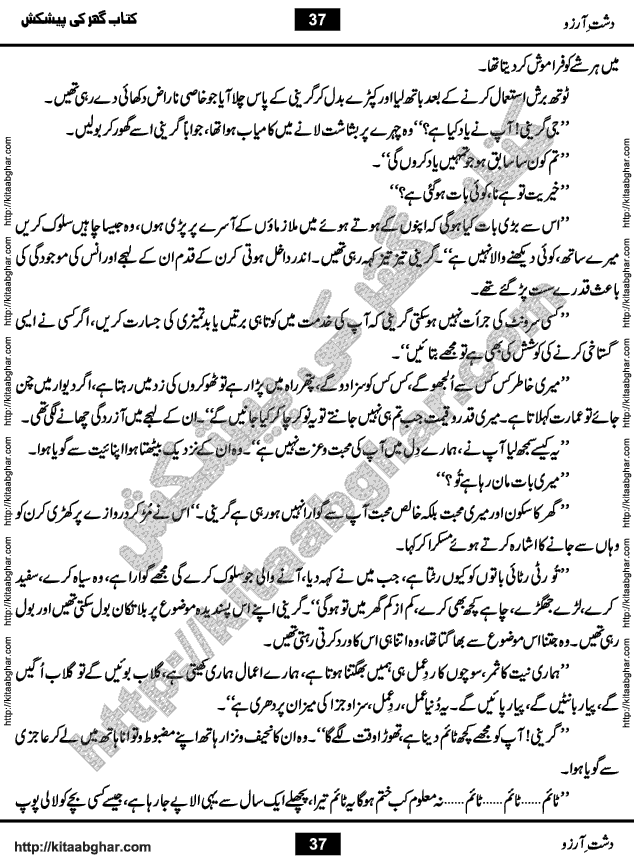 کتاب گھر کی پیشکش 37 دشتِ آرزو
میں ہر شے کو فراموش کر دیتا تھا۔
ٹوتھ برش استعمال کرنے کے بعد باتھ لیا اور کپڑے بدل کر گرینی کے پاس چلا آیا جو خاصی ناراض دکھائی دے رہی تھیں۔
’’جی گرینی! آپ نے یاد کیا ہے؟‘‘ وہ چہرے پر بشاشت لانے میں کامیاب ہوا تھا، جواباً گرینی اسے گھور کر بولیں۔
’’تم کون سا سابق ہو جو تمہیں یاد کروں گی‘‘۔
’’خیریت تو ہے نا، کوئی بات ہو گئی ہے؟‘‘
’’اس سے بڑی بات کیا ہو گی کہ اپنوں کے ہوتے ہوئے میں ملازماؤں کے آسرے پر پڑی ہوں، وہ جیسا چاہیں سلوک کریں
میرے ساتھ، کوئی دیکھنے والا نہیں ہے‘‘۔ گرینی تیز تیز کہہ رہی تھیں۔ اندر داخل ہوتی کرن کے قدم ان کے لہجے اور انس کی موجودگی کی
باعث قدرے سست پڑ گئے تھے۔
’’کسی سرونٹ کی جرأت نہیں ہو سکتی گرینی کہ آپ کی خدمت میں کوتاہی برتیں یا بدتمیزی کی جسارت کریں، اگر کسی نے ایسی
گستاخی کرنے کی کوشش کی بھی ہے تو مجھے بتائیں‘‘۔
’’میری خاطر کس کس سے اُلجھو گے، کس کس کو سزا دو گے، پتھر راہ میں پڑا رہے تو ٹھوکروں کی زد میں رہتا ہے، اگر دیوار میں چن
جائے تو عمارت کہلاتا ہے۔ میری قدر و قیمت جب تم ہی نہیں جانتے تو یہ نوکر چاکر کیا جائیں گے‘‘۔ ان کے لہجے میں آزردگی چھانے لگی تھی۔
’’یہ کیسے سمجھ لیا آپ نے، ہمارے دل میں آپ کی محبت و عزت نہیں ہے‘‘۔ وہ ان کے نزدیک بیٹھتا ہوا اپنائیت سے گویا ہوا۔
’’میری بات مان رہا ہے تُو؟‘‘
’’گھر کا سکون اور میری محبت بلکہ خالص محبت آپ سے گوارا نہیں ہو رہی ہے گرینی‘‘۔ اس نے مُڑ کر دروازے پر کھڑی کرن کو
وہاں سے جانے کا اشارہ کرتے ہوئے مسکرا کر کہا۔
’’تُو رٹی رٹائی باتوں کو کیوں رٹتا ہے، جب میں نے کہہ دیا، آنے والی جو سلوک کرے گی مجھے گوارا ہے، وہ سیاہ کرے، سفید
کرے، لڑے جھگڑے، چاہے کچھ بھی کرے، کم از کم گھر میں تو ہو گی‘‘۔ گرینی اپنے اس پسندیدہ موضوع پر بلا تکان بول سکتی تھیں اور بول
رہی تھیں۔ وہ جتنا اس موضوع سے بھاگتا تھا، وہ اتنا ہی اس کا ورد کرتی رہتی تھیں۔
’’ہماری نیت کا ثمر، سوچوں کا ردِعمل ہی ہمیں بھگتنا ہوتا ہے، ہمارے اعمال ہماری کھیتی ہے، گلاب بوئیں گے تو گلاب اُگیں
گے، پیار بانٹیں گے، پیار پائیں گے۔ یہ دُنیا عمل، ردِعمل، سزا و جزا کی میزان پر دھری ہے‘‘۔
’’گرینی! آپ کو مجھے کچھ ٹائم دینا ہے، تھوڑا وقت لگے گا‘‘۔ وہ ان کا نحیف و نزار ہاتھ اپنے مضبوط و توانا ہاتھ میں لے کر عاجزی
سے گویا ہوا۔
’’ٹائم...... ٹائم...... ٹائم...... نہ معلوم کب ختم ہو گا یہ ٹائم تیرا، پچھلے ایک سال سے یہی الاپے جا رہا ہے، جیسے کسی بچے کو لالی پوپ
http://kitaabghar.com 37 دشتِ آرزو
http://kitaabghar.com
http://kitaabghar.com
http://kitaabghar.com
http://kitaabghar.com
http://kitaabghar.com
http://kitaabghar.com
http://kitaabghar.com
http://kitaabghar.com
http://kitaabghar.com
http://kitaabghar.com
http://kitaabghar.com
http://kitaabghar.com
کتاب گھر کی پیشکش
http://kitaabghar.com